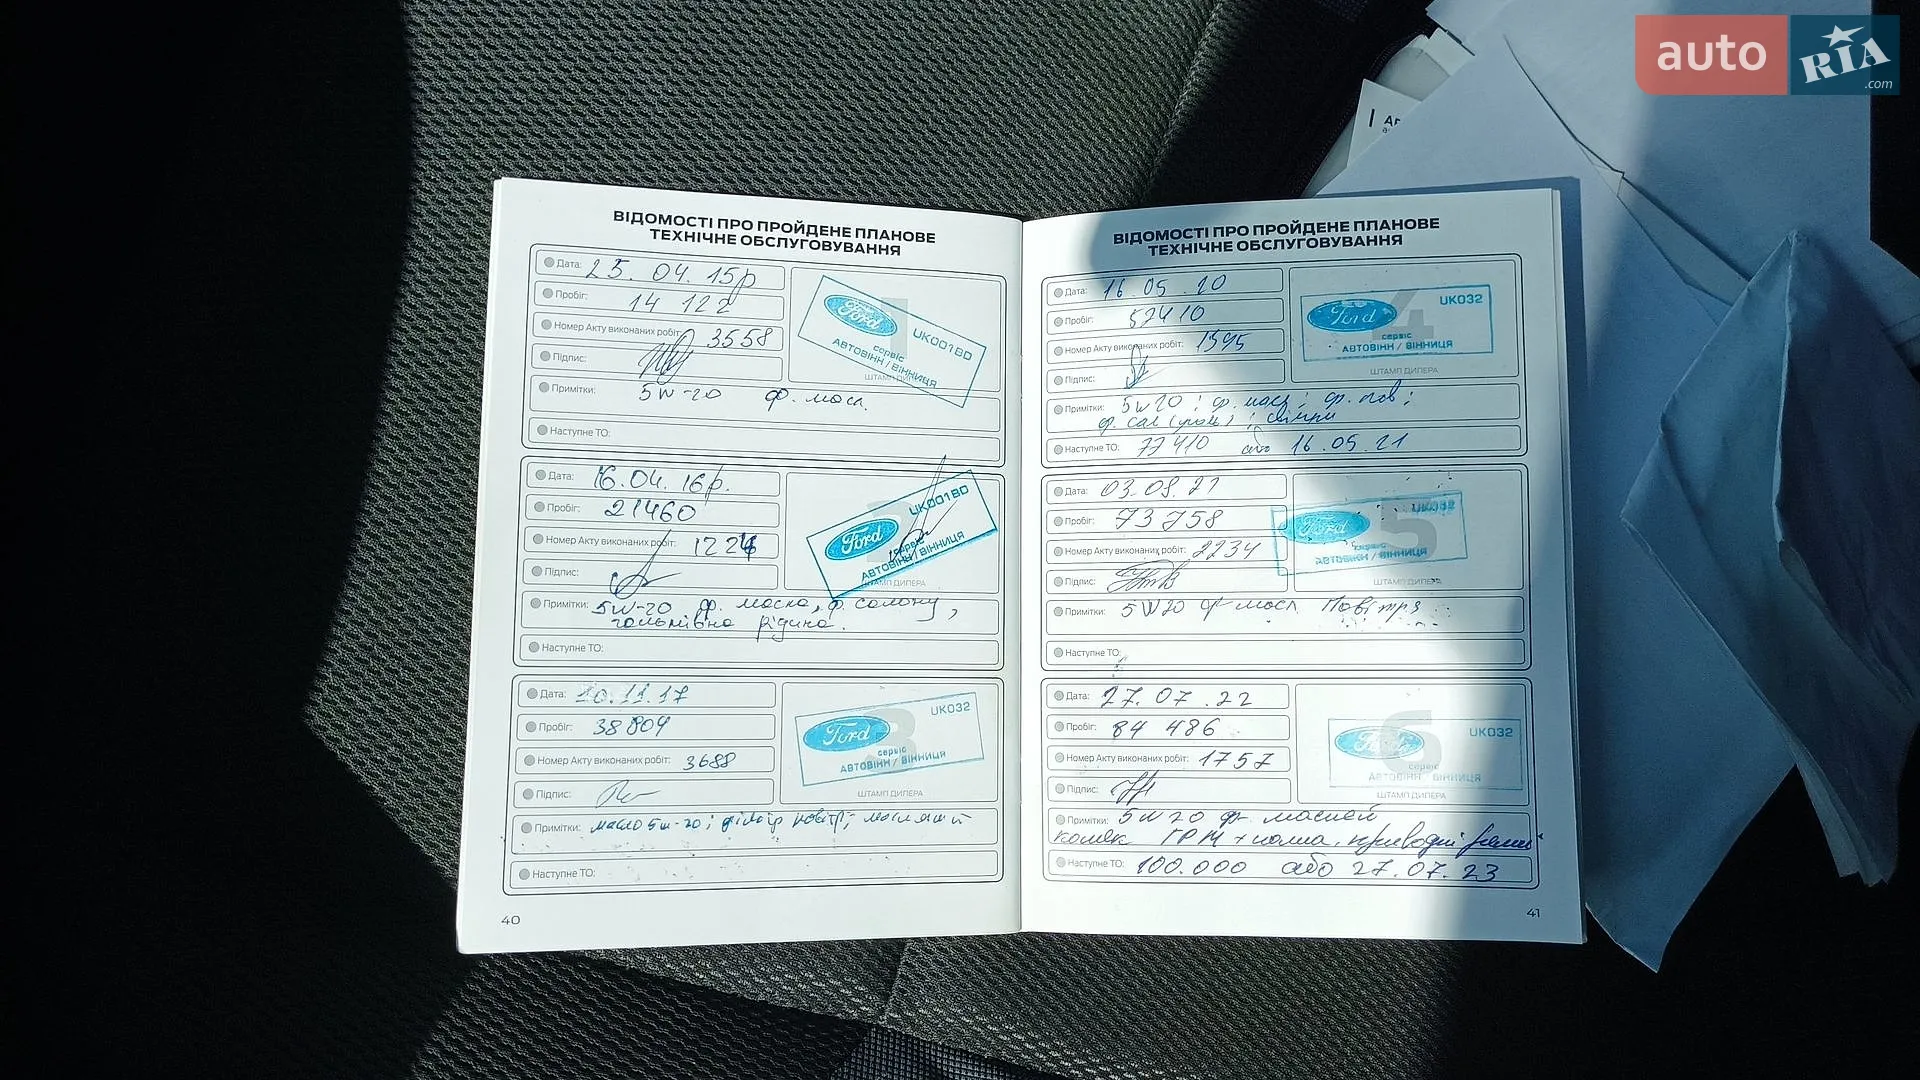 auto RIA.com
ВІДОМОСТІ ПРО ПРОЙДЕНЕ ПЛАНОВЕ
ТЕХНІЧНЕ ОБСЛУГОВУВАННЯ
Дата: 25.04.15р
Пробіг: 14 122
Номер Акту виконаних робіт: 3558
Підпис:
Примітки: 5W-20 ф. масл.
Наступне ТО:
1
Ford
UK001BD
сервіс
АВТОВІНН / ВІННИЦЯ
ШТАМП ДИЛЕРА
Дата: 16.04.16р.
Пробіг: 21460
Номер Акту виконаних робіт: 1224
Підпис:
Примітки: 5W-20 ф. масла, ф. салону,
гальмівна рідина.
Наступне ТО:
Ford
UK001BD
сервіс
АВТОВІНН / ВІННИЦЯ
ШТАМП ДИЛЕРА
Дата: 20.11.17
Пробіг: 38804
Номер Акту виконаних робіт: 3688
Підпис:
Примітки: масло 5w-20; фільтр повітр;
Наступне ТО:
3
Ford
UK032
сервіс
АВТОВІНН / ВІННИЦЯ
ШТАМП ДИЛЕРА
40
ВІДОМОСТІ ПРО ПРОЙДЕНЕ ПЛАНОВЕ
ТЕХНІЧНЕ ОБСЛУГОВУВАННЯ
Дата: 16.05.20
Пробіг: 57410
Номер Акту виконаних робіт: 1395
Підпис:
Примітки: 5w20; ф. масл; ф. пов;
ф. сал; свічки
Наступне ТО: 77410 або 16.05.21
4
Ford
UK032
сервіс
АВТОВІНН / ВІННИЦЯ
ШТАМП ДИЛЕРА
Дата: 03.08.21
Пробіг: 73758
Номер Акту виконаних робіт: 2234
Підпис:
Примітки: 5W20 ф-масл. Повітря
Наступне ТО:
5
Ford
UK032
сервіс
АВТОВІНН / ВІННИЦЯ
ШТАМП ДИЛЕРА
Дата: 27.07.22
Пробіг: 84 486
Номер Акту виконаних робіт: 1757
Підпис:
Примітки: 5W20 ф-
ГРМ + помпа, приводні ремні
Наступне ТО: 100.000 або 27.07.23
6
Ford
UK032
сервіс
АВТОВІНН / ВІННИЦЯ
ШТАМП ДИЛЕРА
41